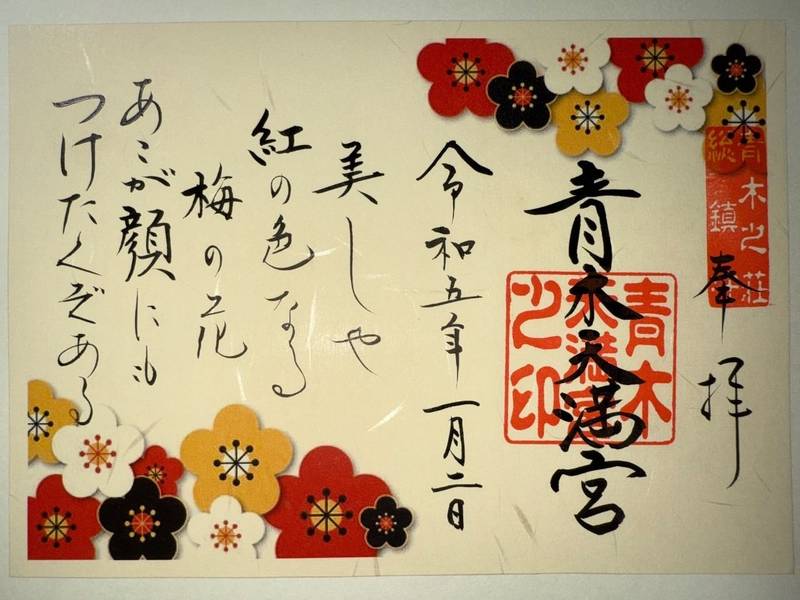 青木之荘
総鎮
奉拝
青木天満宮
青木
之印
令和五年一月二日
美しや
紅の色なる
梅の花
あこが顔にも
つけたくぞある